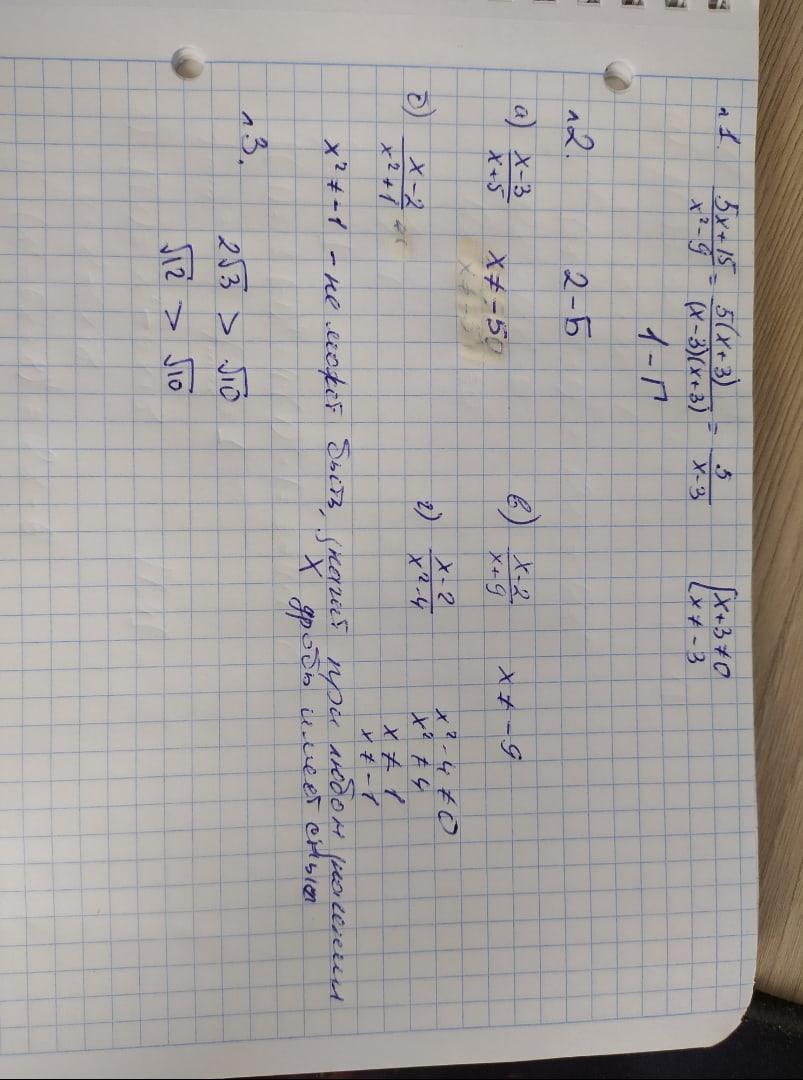 n1. (5x+15)/(x²-9) = 5(x+3)/((x-3)(x+3)) = 5/(x-3) {x+3≠0
x≠-3
1-П
n2. 2-Б
а) (x-3)/(x+5) x≠-5 в) (x-2)/(x+9) x≠-9
б) (x-2)/(x²+1) г) (x-2)/(x²-4) x²-4≠0
x²≠4
x≠1
x≠-1
x²≠-1 - не может быть, значит при любом значении
x дробь имеет смысл
n3. 2√3 > √10
√12 > √10